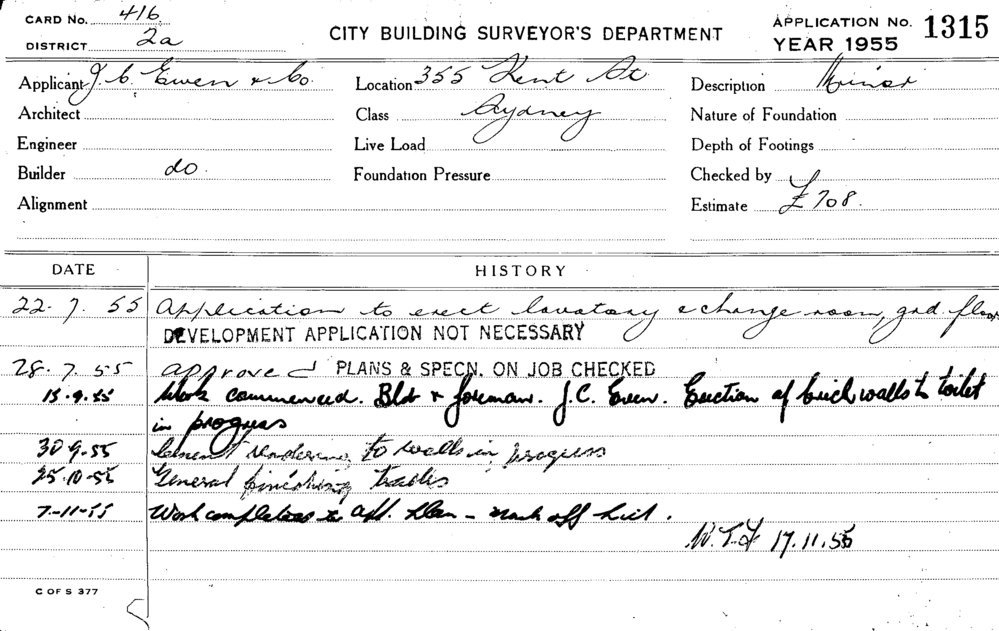 CARD No. 416
DISTRICT 2a
CITY BUILDING SURVEYOR'S DEPARTMENT
APPLICATION No. 1315
YEAR 1955
Applicant J. C. Ewen & Co. Location 355 Kent St Description Minor
Architect Class Sydney Nature of Foundation
Engineer Live Load Depth of Footings
Builder do. Foundation Pressure Checked by
Alignment Estimate £708.
DATE HISTORY
22. 7. 55 Application to erect lavatory & change room, grd floor
DEVELOPMENT APPLICATION NOT NECESSARY
28. 7. 55 Approved PLANS & SPECN. ON JOB CHECKED
15.9.55 Work commenced. Bldr & foreman. J.C. Ewen. Erection of brick walls to toilet
in progress
30 9.55 Cement rendering to walls in progress
25.10.55 General finishing trades
7-11-55 Work completed to app. plan - mark off list.
17.11.55
C OF S 377